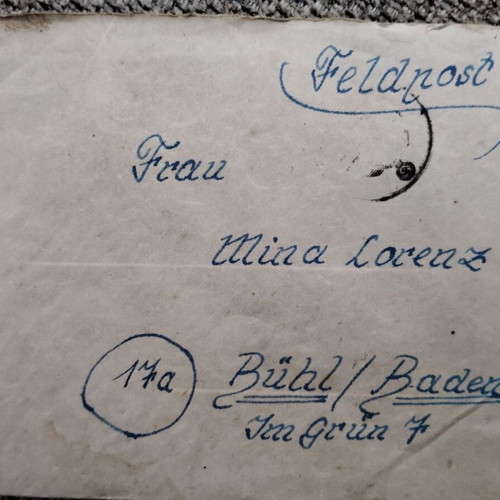 Feldpost
Frau
Mina Lorenz
17a
Bühl/Baden
Im Grün 7